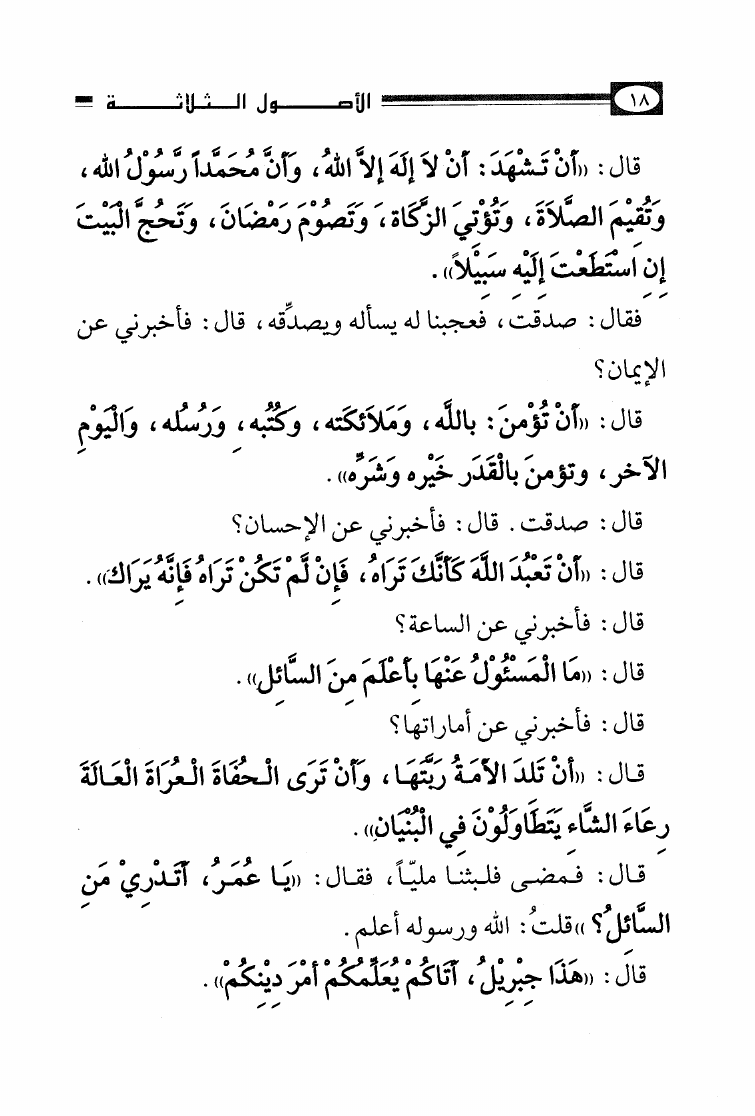 ١٨ الأصـــــول الـــثـــلاثـــــة
قال: «أَنْ تَشْهَدَ: أَنْ لاَ إِلَهَ إِلاَّ اللهُ، وَأَنَّ مُحَمَّداً رَّسُوْلُ الله،
وَتُقِيْمَ الصَّلاَةَ، وَتُؤْتِيَ الزَّكَاةَ، وَتَصُوْمَ رَمْضَانَ، وَتَحُجَّ الْبَيْتَ
إِنِ اسْتَطَعْتَ إِلَيْهِ سَبِيْلاً».
فقال: صدقت، فعجبنا له يسأله ويصدِّقه، قال: فأخبرني عن
الإيمان؟
قال: «أَنْ تُؤْمِنَ: بِاللَّه، وَمَلاَئكَته، وَكُتُبِه، وَرُسُله، وَالْيَوْمِ
الآخر، وتؤمنَ بِالْقَدَر خَيْرِه وَشَرِّه».
قال: صدقت. قال: فأخبرني عن الإحسان؟
قال: «أَنْ تَعْبُدَ اللَّهَ كَأَنَّكَ تَرَاهُ، فَإِنْ لَّمْ تَكُنْ تَرَاهُ فَإِنَّهُ يَرَاكَ».
قال: فأخبرني عن الساعة؟
قال: «مَا الْمَسْئُوْلُ عَنْهَا بِأَعْلَمَ مِنَ السَّائِلِ».
قال: فأخبرني عن أماراتها؟
قـال: «أنْ تَلِدَ الأَمَـةُ رَبَّتَهَـا، وَأَنْ تَرَى الْـحُفَاةَ الْعُرَاةَ الْعَـالَةَ
رِعَاءَ الشَّاءِ يَتَطَاوَلُوْنَ فِي الْبُنْيَانِ».
قـال: فـمضـى فلـبثنـا مليّـاً، فقـال: «يَـا عُمَـرُ، أَتَـدْرِيْ مَنِ
السَّائِلُ؟» قلتُ: الله ورسوله أعلم.
قال: «هَذَا جِبْرِيْلُ، أَتَاكُمْ يُعَلِّمُكُمْ أمْرَ دِيْنِكُمْ».